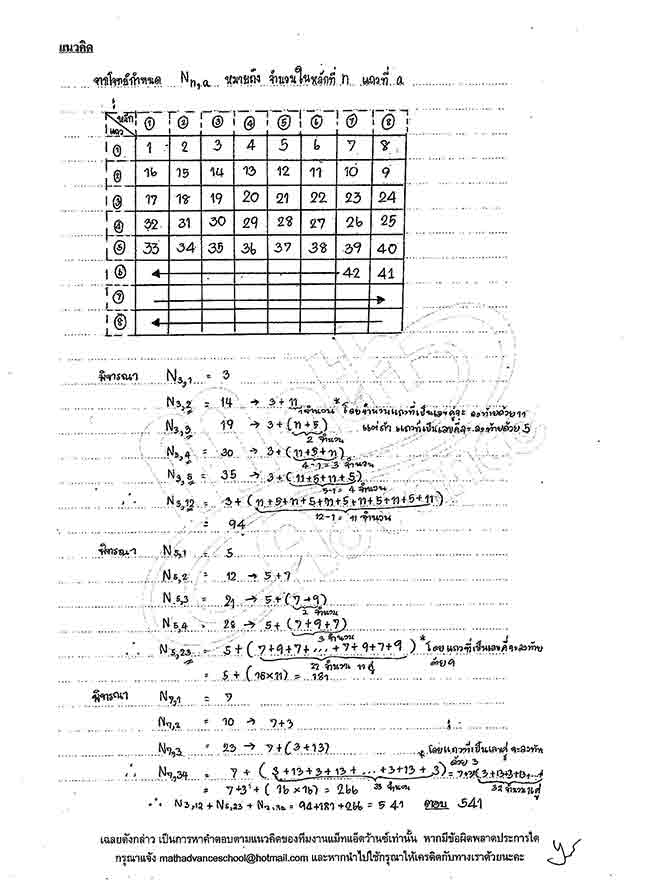 แนวคิด
จากโจทย์กำหนด N n,a หมายถึง จำนวนในหลักที่ n แถวที่ a
หลัก แถว ① ② ③ ④ ⑤ ⑥ ⑦ ⑧
① 1 2 3 4 5 6 7 8
② 16 15 14 13 12 11 10 9
③ 17 18 19 20 21 22 23 24
④ 32 31 30 29 28 27 26 25
⑤ 33 34 35 36 37 38 39 40
⑥ 42 41
⑦
⑧
พิจารณา N3,1 = 3
N3,2 = 14 → 3+11 * โดยจำนวนแถวที่เป็นเลขคู่จะ ลงท้ายด้วย 11
1 จำนวน
N3,3 19 → 3+(11+5) แต่ถ้า แถวที่เป็นเลขคี่จะลงท้ายด้วย 5
2 จำนวน
N3,4 = 30 → 3+(11+5+11)
4-1 = 3 จำนวน
N3,5 = 35 → 3+(11+5+11+5)
5-1 = 4 จำนวน
∴ N3,12 = 3+(11+5+11+5+11+5+11+5+11+5+11)
12-1 = 11 จำนวน
= 94
พิจารณา N5,1 = 5
N5,2 = 12 → 5+7
N5,3 = 21 → 5+(7+9)
2 จำนวน
N5,4 = 28 → 5+(7+9+7)
3 จำนวน
∴ N5,23 = 5+(7+9+7+...+7+9+7+9) * โดย แถวที่เป็นเลขคี่จะลงท้าย
22 จำนวน 11 คู่ ด้วย 9
= 5+(16×11) = 181
พิจารณา N7,1 = 7
N7,2 = 10 → 7+3
N7,3 = 23 → 7+(3+13) * โดยแถวที่เป็นเลขคู่ จะลงท้าย
ด้วย 3
∴ N7,34 = 7+(3+13+3+13+...+3+13+3) = 7+3+(3+13+3+13+...
33 จำนวน 32 จำนวน 16 คู่
= 7+3+(16×16) = 266
∴ N3,12 + N5,23 + N7,34 = 94+181+266 = 541 ตอบ 541
เฉลยดังกล่าว เป็นการหาคำตอบตามแนวคิดของทีมงานแม็ทแอ็ดว้านซ์เท่านั้น หากมีข้อผิดพลาดประการใด
กรุณาแจ้ง mathadvanceschool@hotmail.com และหากนำไปใช้กรุณาให้เครดิตกับทางเราด้วยนะคะ